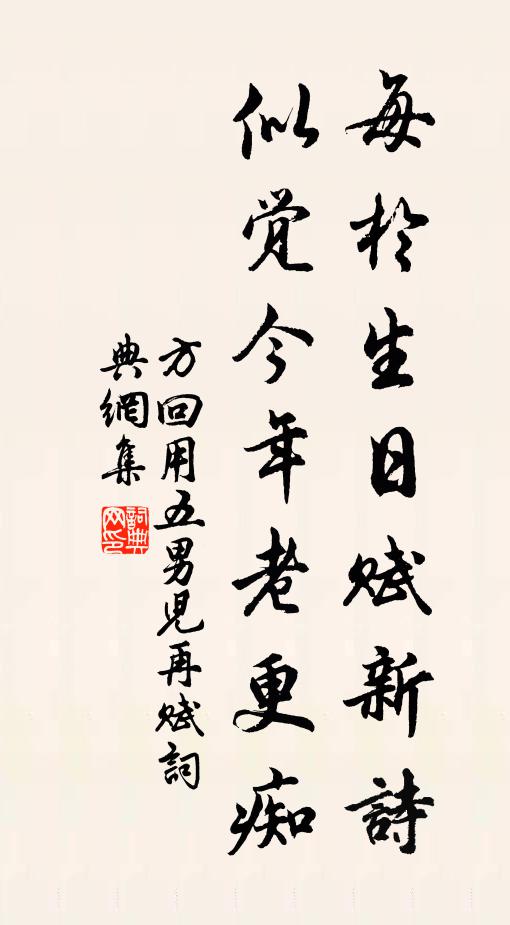 每於生日赋新詩
似觉今年老更痴
方回用五男児再赋詞
典網集
詞典網印